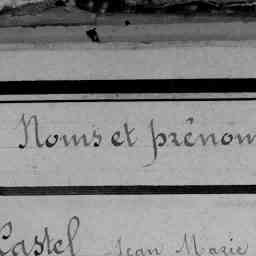 Noms et prénom
Castel Jean Marie